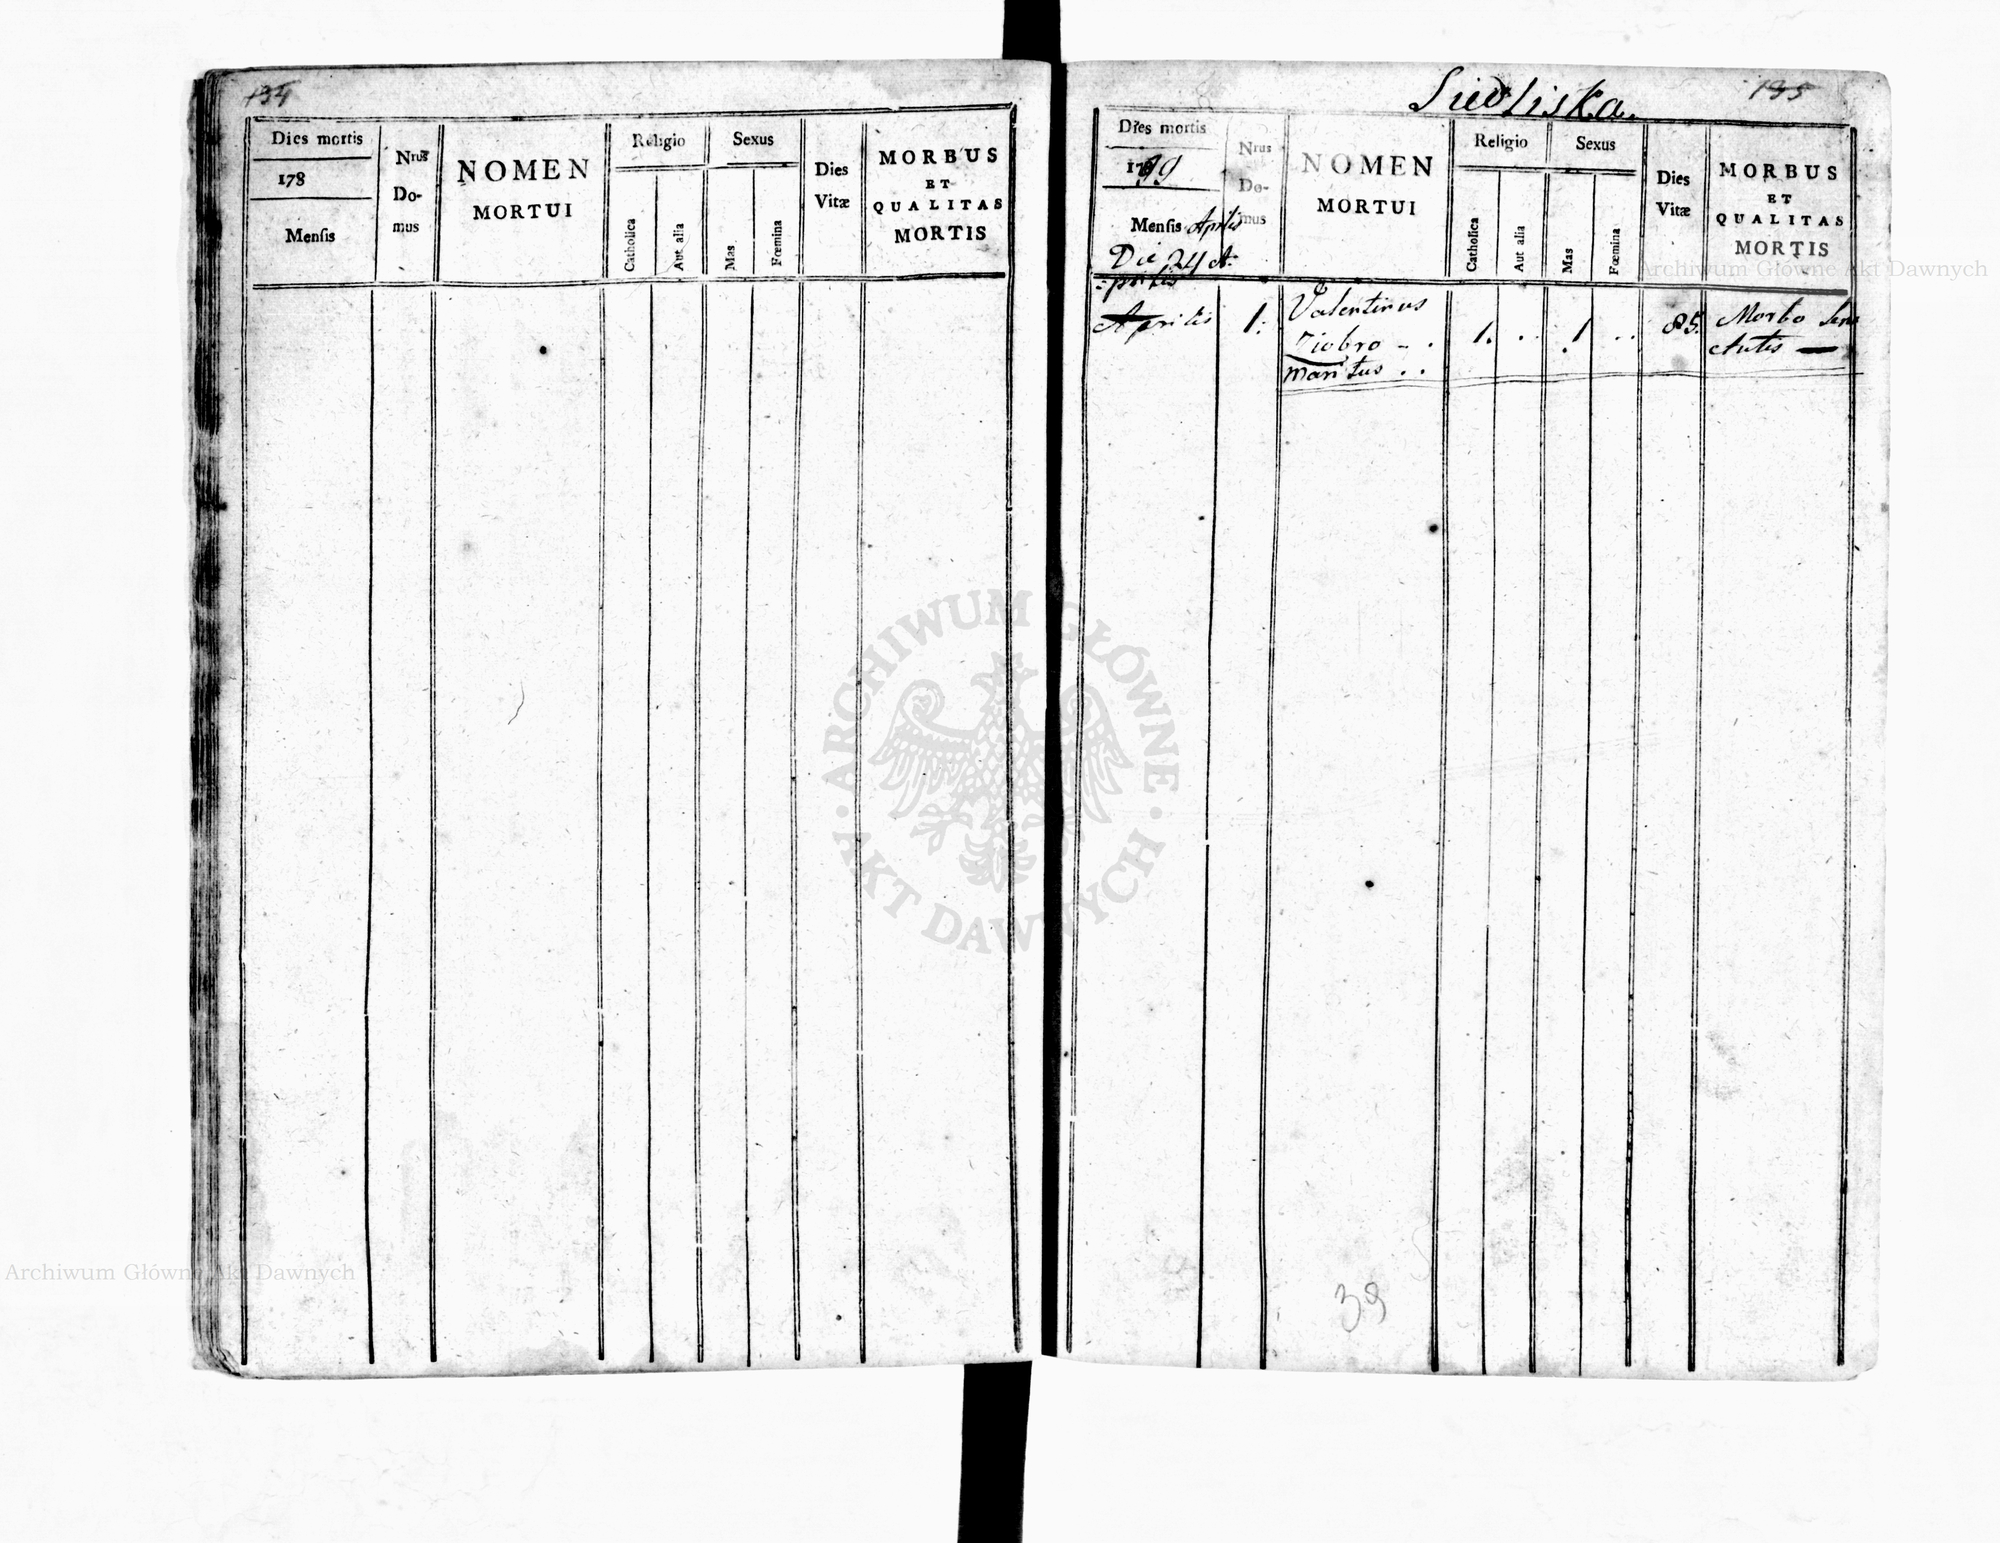 134
Dies mortis
178
Mensis
Nrus
Do-
mus
NOMEN
MORTUI
Religio
Catholica
Aut alia
Sexus
Mas
Fœmina
Dies
Vitæ
MORBUS
ET
QUALITAS
MORTIS
Siedliska.
135
Dies mortis
1799
Mensis Aprilis
Die 24 A-
-prilis
Aprilis
Nrus
Do-
mus
1.
NOMEN
MORTUI
Valentinus
Ziobro - .
maritus . .
Religio
Catholica
Aut alia
1. ..
Sexus
Mas
Fœmina
1 ..
Dies
Vitæ
85.
MORBUS
ET
QUALITAS
MORTIS
Morbo Sene
ctutis —
39
Archiwum Główne Akt Dawnych
ARCHIWUM GŁÓWNE
· AKT DAWNYCH ·
Archiwum Główne Akt Dawnych